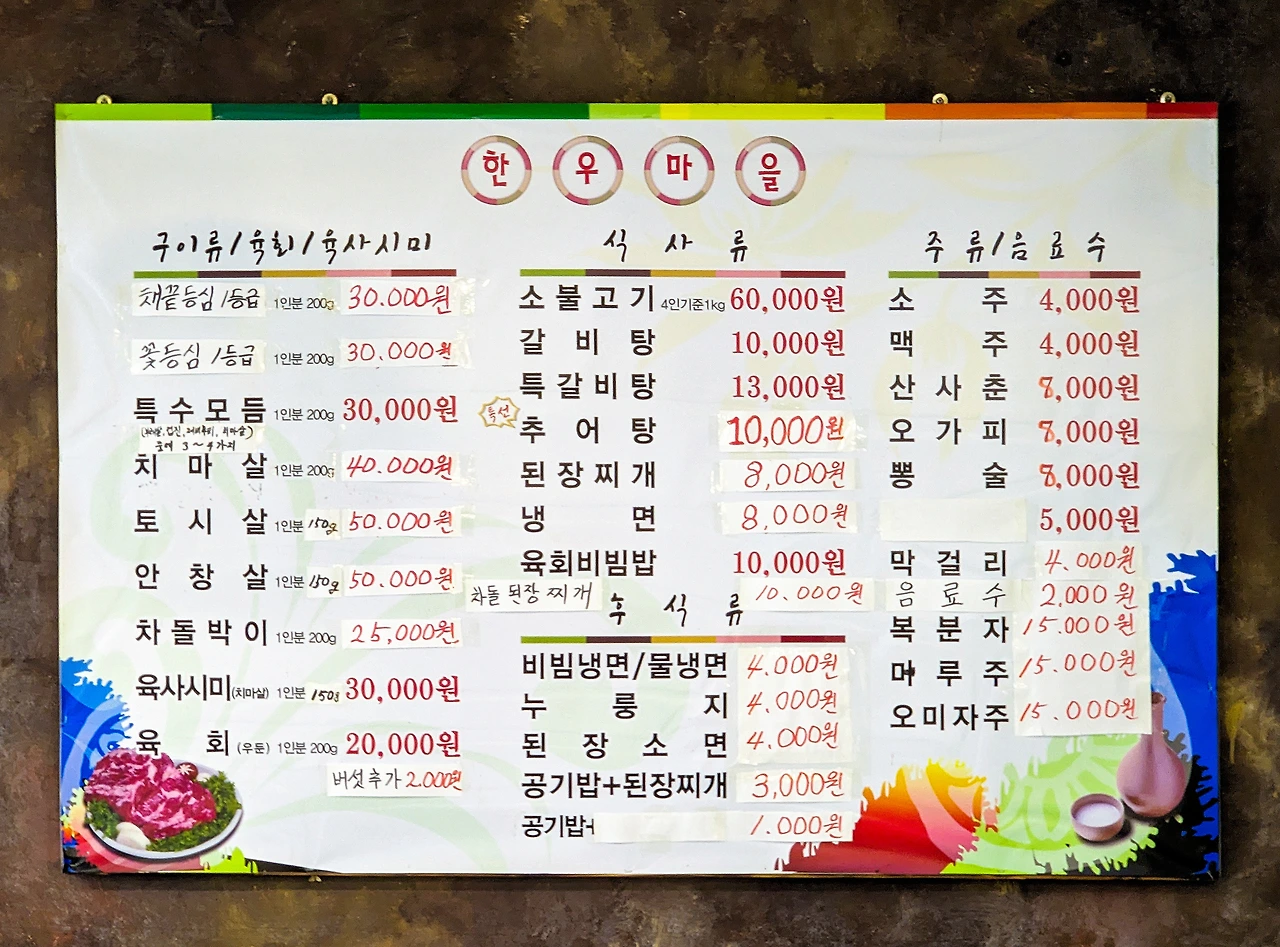 한우마을
구이류/육회/육사시미
채끝등심 1등급 1인분 200g 30.000원
꽃등심 1등급 1인분 200g 30.000원
특수모듬 1인분 200g 30,000원
중에 3~4가지
치마살 1인분 200g 40.000원
토시살 1인분 150g 50.000원
안창살 1인분 150g 50.000원
차돌박이 1인분 200g 25,000원
육사시미(치마살) 1인분 150g 30,000원
육회(우둔) 1인분 200g 20,000원
버섯추가 2.000원
식사류
소불고기 4인기준1kg 60,000원
갈비탕 10,000원
특갈비탕 13,000원
특선 추어탕 10,000원
된장찌개 8,000원
냉면 8,000원
육회비빔밥 10,000원
차돌 된장찌개 10.000원
후식류
비빔냉면/물냉면 4.000원
누룽지 4.000원
된장소면 4.000원
공기밥+된장찌개 3,000원
공기밥+ 1.000원
주류/음료수
소주 4,000원
맥주 4,000원
산사춘 8,000원
오가피 8,000원
뽕술 8,000원
5,000원
막걸리 4.000원
음료수 2.000원
복분자 15.000원
머루주 15.000원
오미자주 15.000원